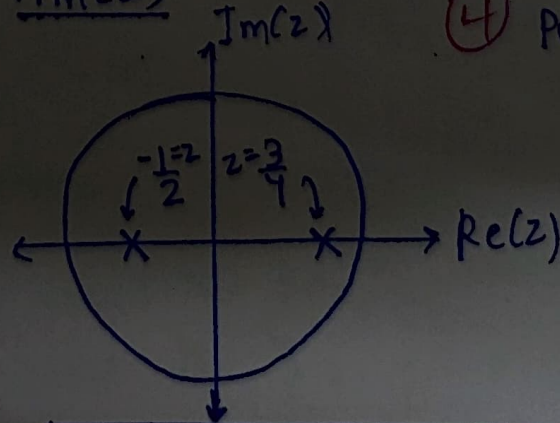 Im(z)
4
-1/2=z
z=3/4
Re(z)